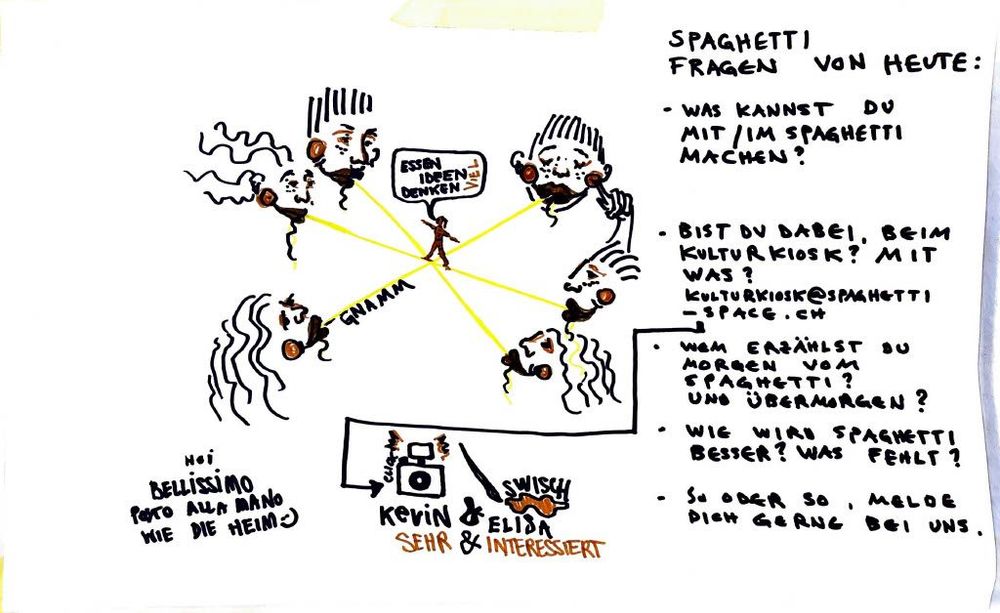 SPAGHETTI
FRAGEN VON HEUTE:
- WAS KANNST DU
MIT/IM SPAGHETTI
MACHEN?
- BIST DU DABEI, BEIM
KULTURKIOSK? MIT
WAS?
KULTURKIOSK@SPAGHETTI
-SPACE.CH
- WEM ERZÄHLST DU
MORGEN VOM
SPAGHETTI?
UND ÜBERMORGEN?
- WIE WIRD SPAGHETTI
BESSER? WAS FEHLT?
- SO ODER SO, MELDE
DICH GERNE BEI UNS.
ESSEN
IDEEN
DENKEN VIEL
-GNAMM
HOI
BELLISSIMO
ALLA MANO
WIE DIE HEIM:)
SWISCH
KEVIN & ELISA
SEHR & INTERESSIERT